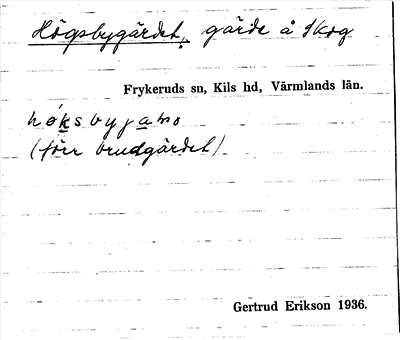 Högsbygärdet, gärde å Skog
Frykeruds sn, Kils hd, Värmlands län.
(förr brudgärdet)
Gertrud Erikson 1936.